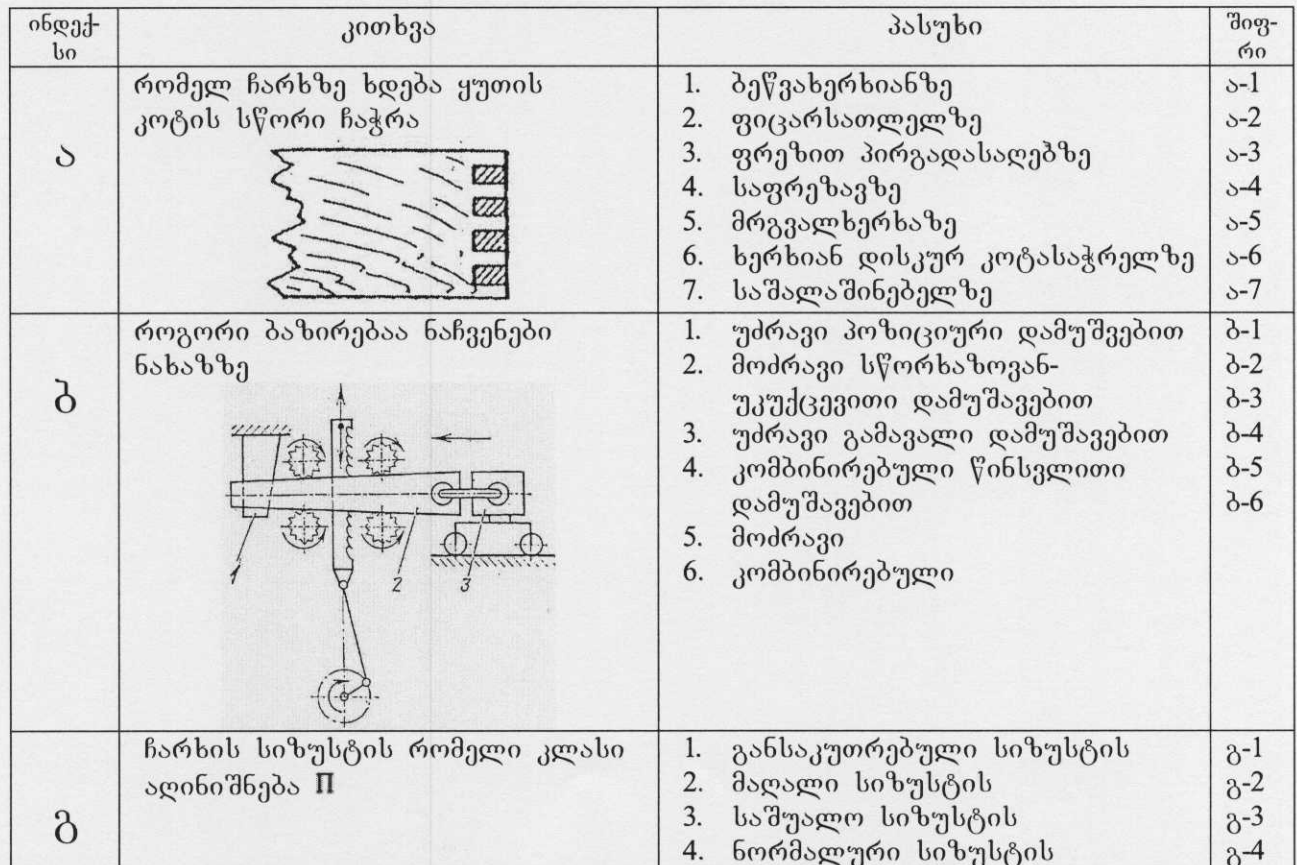 ინდექ-
სი
კითხვა
პასუხი
შიფ-
რი
ა
რომელ ჩარხზე ხდება ყუთის
კოტის სწორი ჩაჭრა
1. ბეწვახერხიანზე
2. ფიცარსათლელზე
3. ფრეზით პირგადასაღებზე
4. საფრეზავზე
5. მრგვალხერხაზე
6. ხერხიან დისკურ კოტასაჭრელზე
7. საშალაშინებელზე
ა-1
ა-2
ა-3
ა-4
ა-5
ა-6
ა-7
ბ
როგორი ბაზირებაა ნაჩვენები
ნახაზზე
1
2
3
1. უძრავი პოზიციური დამუშვებით
2. მოძრავი სწორხაზოვან-
უკუქცევითი დამუშავებით
3. უძრავი გამავალი დამუშავებით
4. კომბინირებული წინსვლითი
დამუშავებით
5. მოძრავი
6. კომბინირებული
ბ-1
ბ-2
ბ-3
ბ-4
ბ-5
ბ-6
გ
ჩარხის სიზუსტის რომელი კლასი
აღინიშნება П
1. განსაკუთრებული სიზუსტის
2. მაღალი სიზუსტის
3. საშუალო სიზუსტის
4. ნორმალური სიზუსტის
გ-1
გ-2
გ-3
გ-4